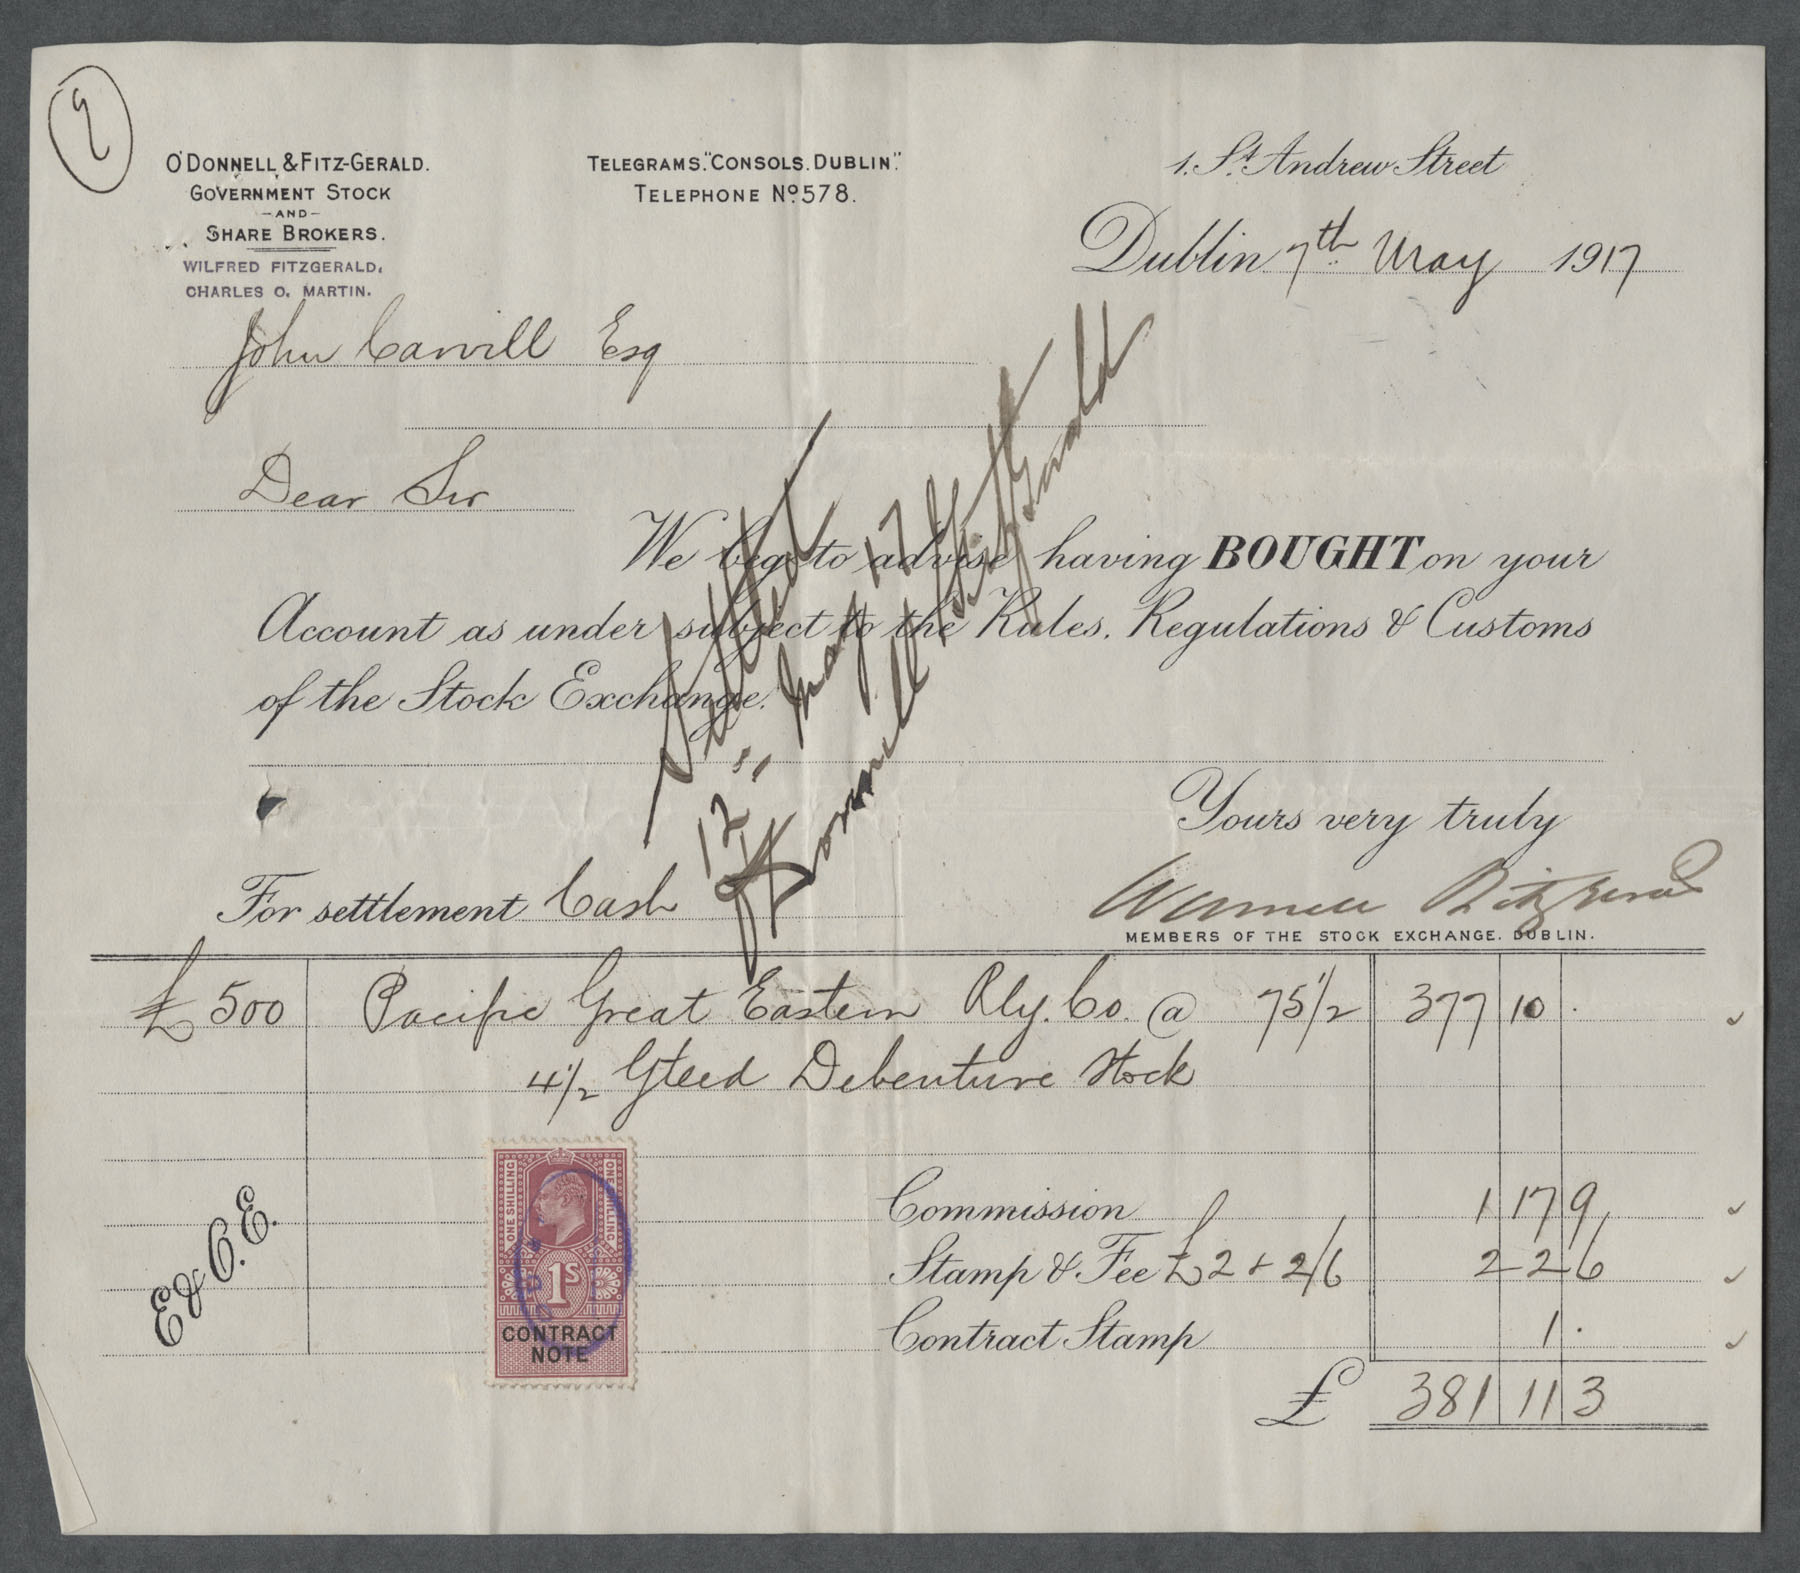 9
O'DONNELL & FITZ-GERALD.
GOVERNMENT STOCK
-AND-
SHARE BROKERS.
WILFRED FITZGERALD,
CHARLES O. MARTIN.
TELEGRAMS. "CONSOLS. DUBLIN".
TELEPHONE No. 578.
1. St. Andrew Street
Dublin 7th May 1917
John Carvill Esq
Dear Sir
We beg to advise having BOUGHT on your
Account as under subject to the Rules, Regulations & Customs
of the Stock Exchange.
Settled
12 May 17
O'Donnell & Fitzgerald
Yours very truly
O'Donnell Fitzgerald
MEMBERS OF THE STOCK EXCHANGE. DUBLIN.
For settlement Cash
£500 Pacific Great Eastern Rly. Co. @ 75 1/2 377 10 .
4 1/2 Gteed Debenture Stock
Commission 1 17 9
Stamp & Fee £2 + 2/6 2 2 6
Contract Stamp 1 .
£ 381 11 3
E & O.E.
ONE SHILLING
ONE SHILLING
1S
CONTRACT
NOTE